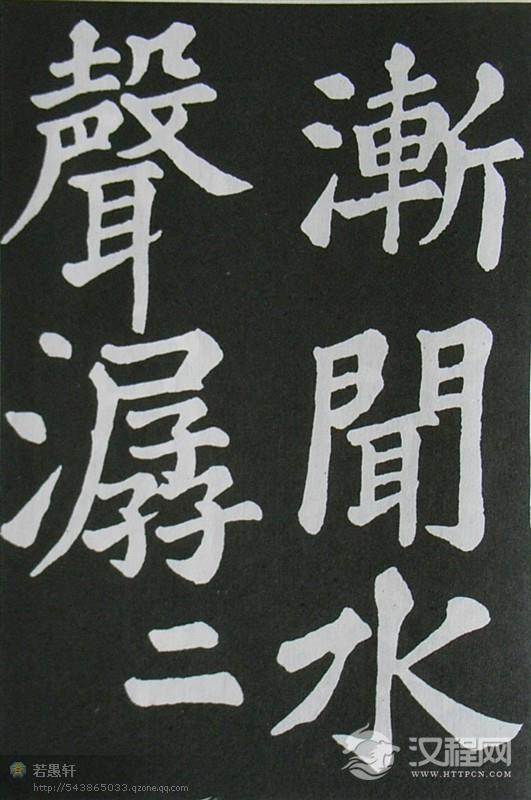 漸聞水
聲潺二
若愚轩
http://543865033.qzone.qq.com
汉程网
WWW.HTTPCN.COM